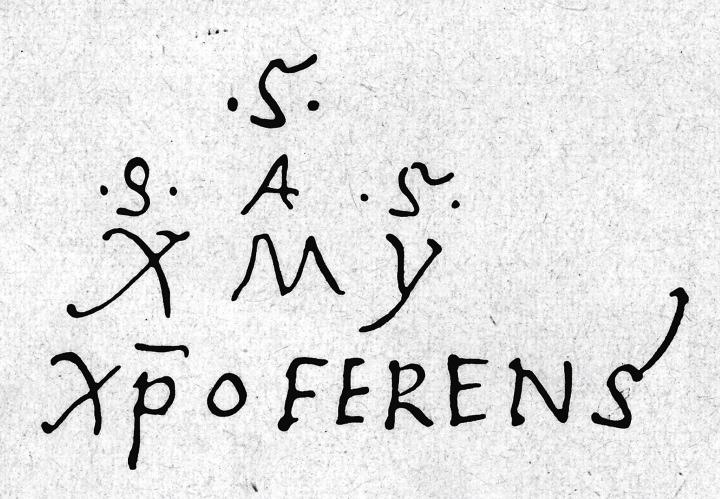 .S.
.S. A .S.
X M Y
Xp̄o FERENS